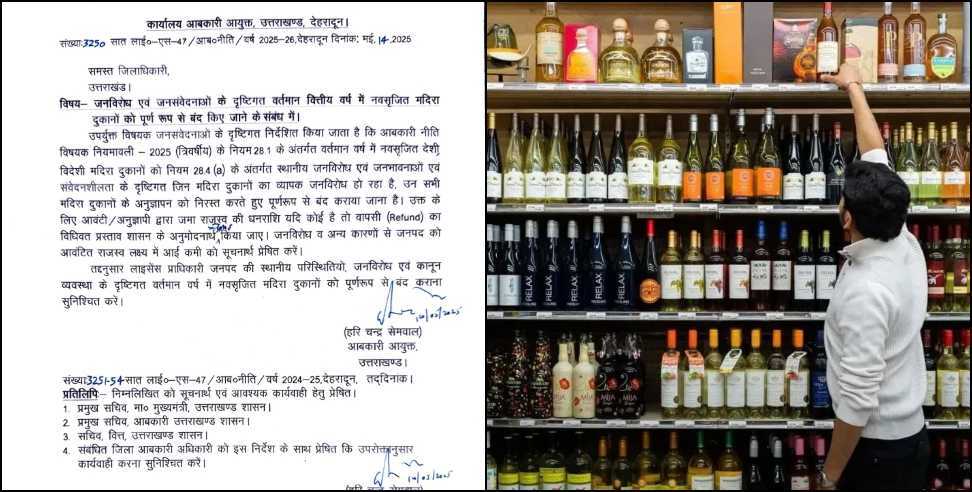 कार्यालय आबकारी आयुक्त, उत्तराखण्ड, देहरादून।
संख्या:3250 सात लाई०–एस–47/आब०नीति/वर्ष 2025–26,देहरादून दिनांक: मई, 14, 2025
समस्त जिलाधिकारी,
उत्तराखण्ड।
विषय– जनविरोध एवं जनसंवेदनाओं के दृष्टिगत वर्तमान वित्तीय वर्ष में नवसृजित मदिरा
दुकानों को पूर्ण रूप से बंद किए जाने के संबंध में।
उपर्युक्त विषयक जनसंवेदनाओं के दृष्टिगत निर्देशित किया जाता है कि आबकारी नीति
विषयक नियमावली – 2025 (त्रिवर्षीय) के नियम 28.1 के अंतर्गत वर्तमान वर्ष में नवसृजित देशी,
विदेशी मदिरा दुकानों को नियम 28.4 (a) के अंतर्गत स्थानीय जनविरोध एवं जनभावनाओं एवं
संवेदनशीलता के दृष्टिगत जिन मदिरा दुकानों का व्यापक जनविरोध हो रहा है, उन सभी
मदिरा दुकानों के अनुज्ञापन को निरस्त करते हुए पूर्णरूप से बंद कराया जाना है। उक्त के
लिए आवंटी/अनुज्ञापी द्वारा जमा राजस्व की धनराशि यदि कोई है तो वापसी (Refund) का
विधिवत प्रस्ताव शासन के अनुमोदनार्थ किया जाए। जनविरोध व अन्य कारणों से जनपद को
आवंटित राजस्व लक्ष्य में आई कमी को सूचनार्थ प्रेषित करें।
तद्नुसार लाइसेंस प्राधिकारी जनपद की स्थानीय परिस्थितियो, जनविरोध एवं कानून
व्यवस्था के दृष्टिगत वर्तमान वर्ष में नवसृजित मदिरा दुकानों को पूर्णरूप से बंद कराना
सुनिश्चित करें।
(हरि चन्द्र सेमवाल)
आबकारी आयुक्त,
उत्तराखण्ड।
संख्या:3251-54 सात लाई०–एस–47/आब०नीति/वर्ष 2024–25,देहरादून, तद्दिनाक।
प्रतिलिपिः– निम्नलिखित को सूचनार्थ एवं आवश्यक कार्यवाही हेतु प्रेषित।
1. प्रमुख सचिव, मा० मुख्यमंत्री, उत्तराखण्ड शासन।
2. प्रमुख सचिव, आबकारी उत्तराखण्ड शासन।
3. सचिव, वित्त, उत्तराखण्ड शासन।
4. संबंधित जिला आबकारी अधिकारी को इस निर्देश के साथ प्रेषित कि उपरोक्तनुसार
कार्यवाही करना सुनिश्चित करें।
(हरि चन्द्र सेमवाल)
RELAX RELAX RELAX
MIA MIA